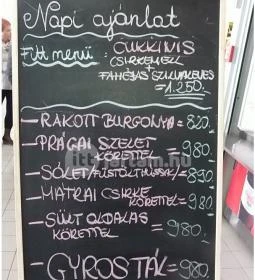 Napi ajánlat
Fitt menü: CUKKINIS
CSIRKEMELL
FAHÉJAS SZILVALEVES
=1.250.-
- RAKOTT BURGONYA = 820.-
- PRÁGAI SZELET
KÖRETTEL = 980.-
- SÓLET/FÜSTÖLT HÚSSAL/= 890
- MÁTRAI CSIRKE
KÖRETTEL = 980
- SÜLT OLDALAS
KÖRETTEL = 980.-
- GYROSTÁL = 980.-
ittjartam.hu